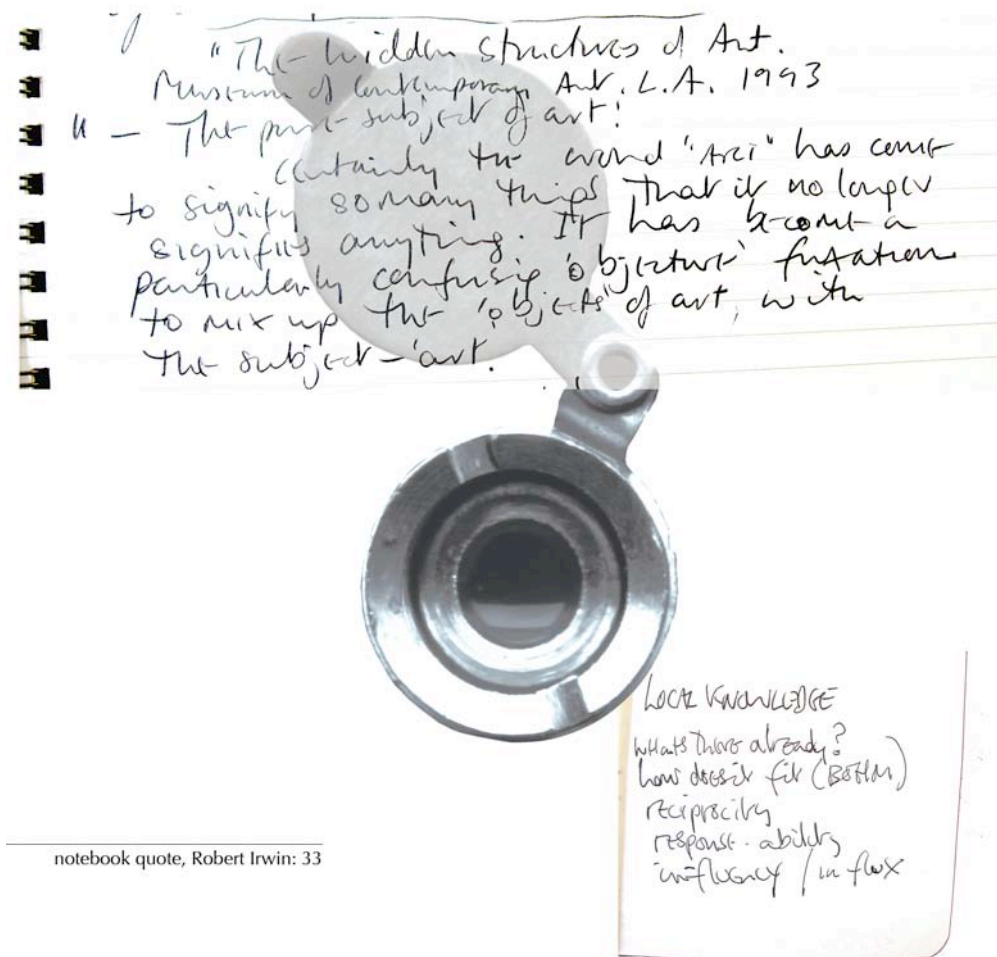 "The hidden structures of Art.
Museum of Contemporary Art. L.A. 1993
" — The pure subject of art!
Certainly the word "Art" has come
to signify so many things that it no longer
signifies anything. It has become a
particularly confusing 'objective'
to mix up the 'objects' of art, with
the subject – 'art.
LOCAL KNOWLEDGE
whats there already?
how does it fit (BOHM)
reciprocity
response.ability
influency / in flux
notebook quote, Robert Irwin: 33